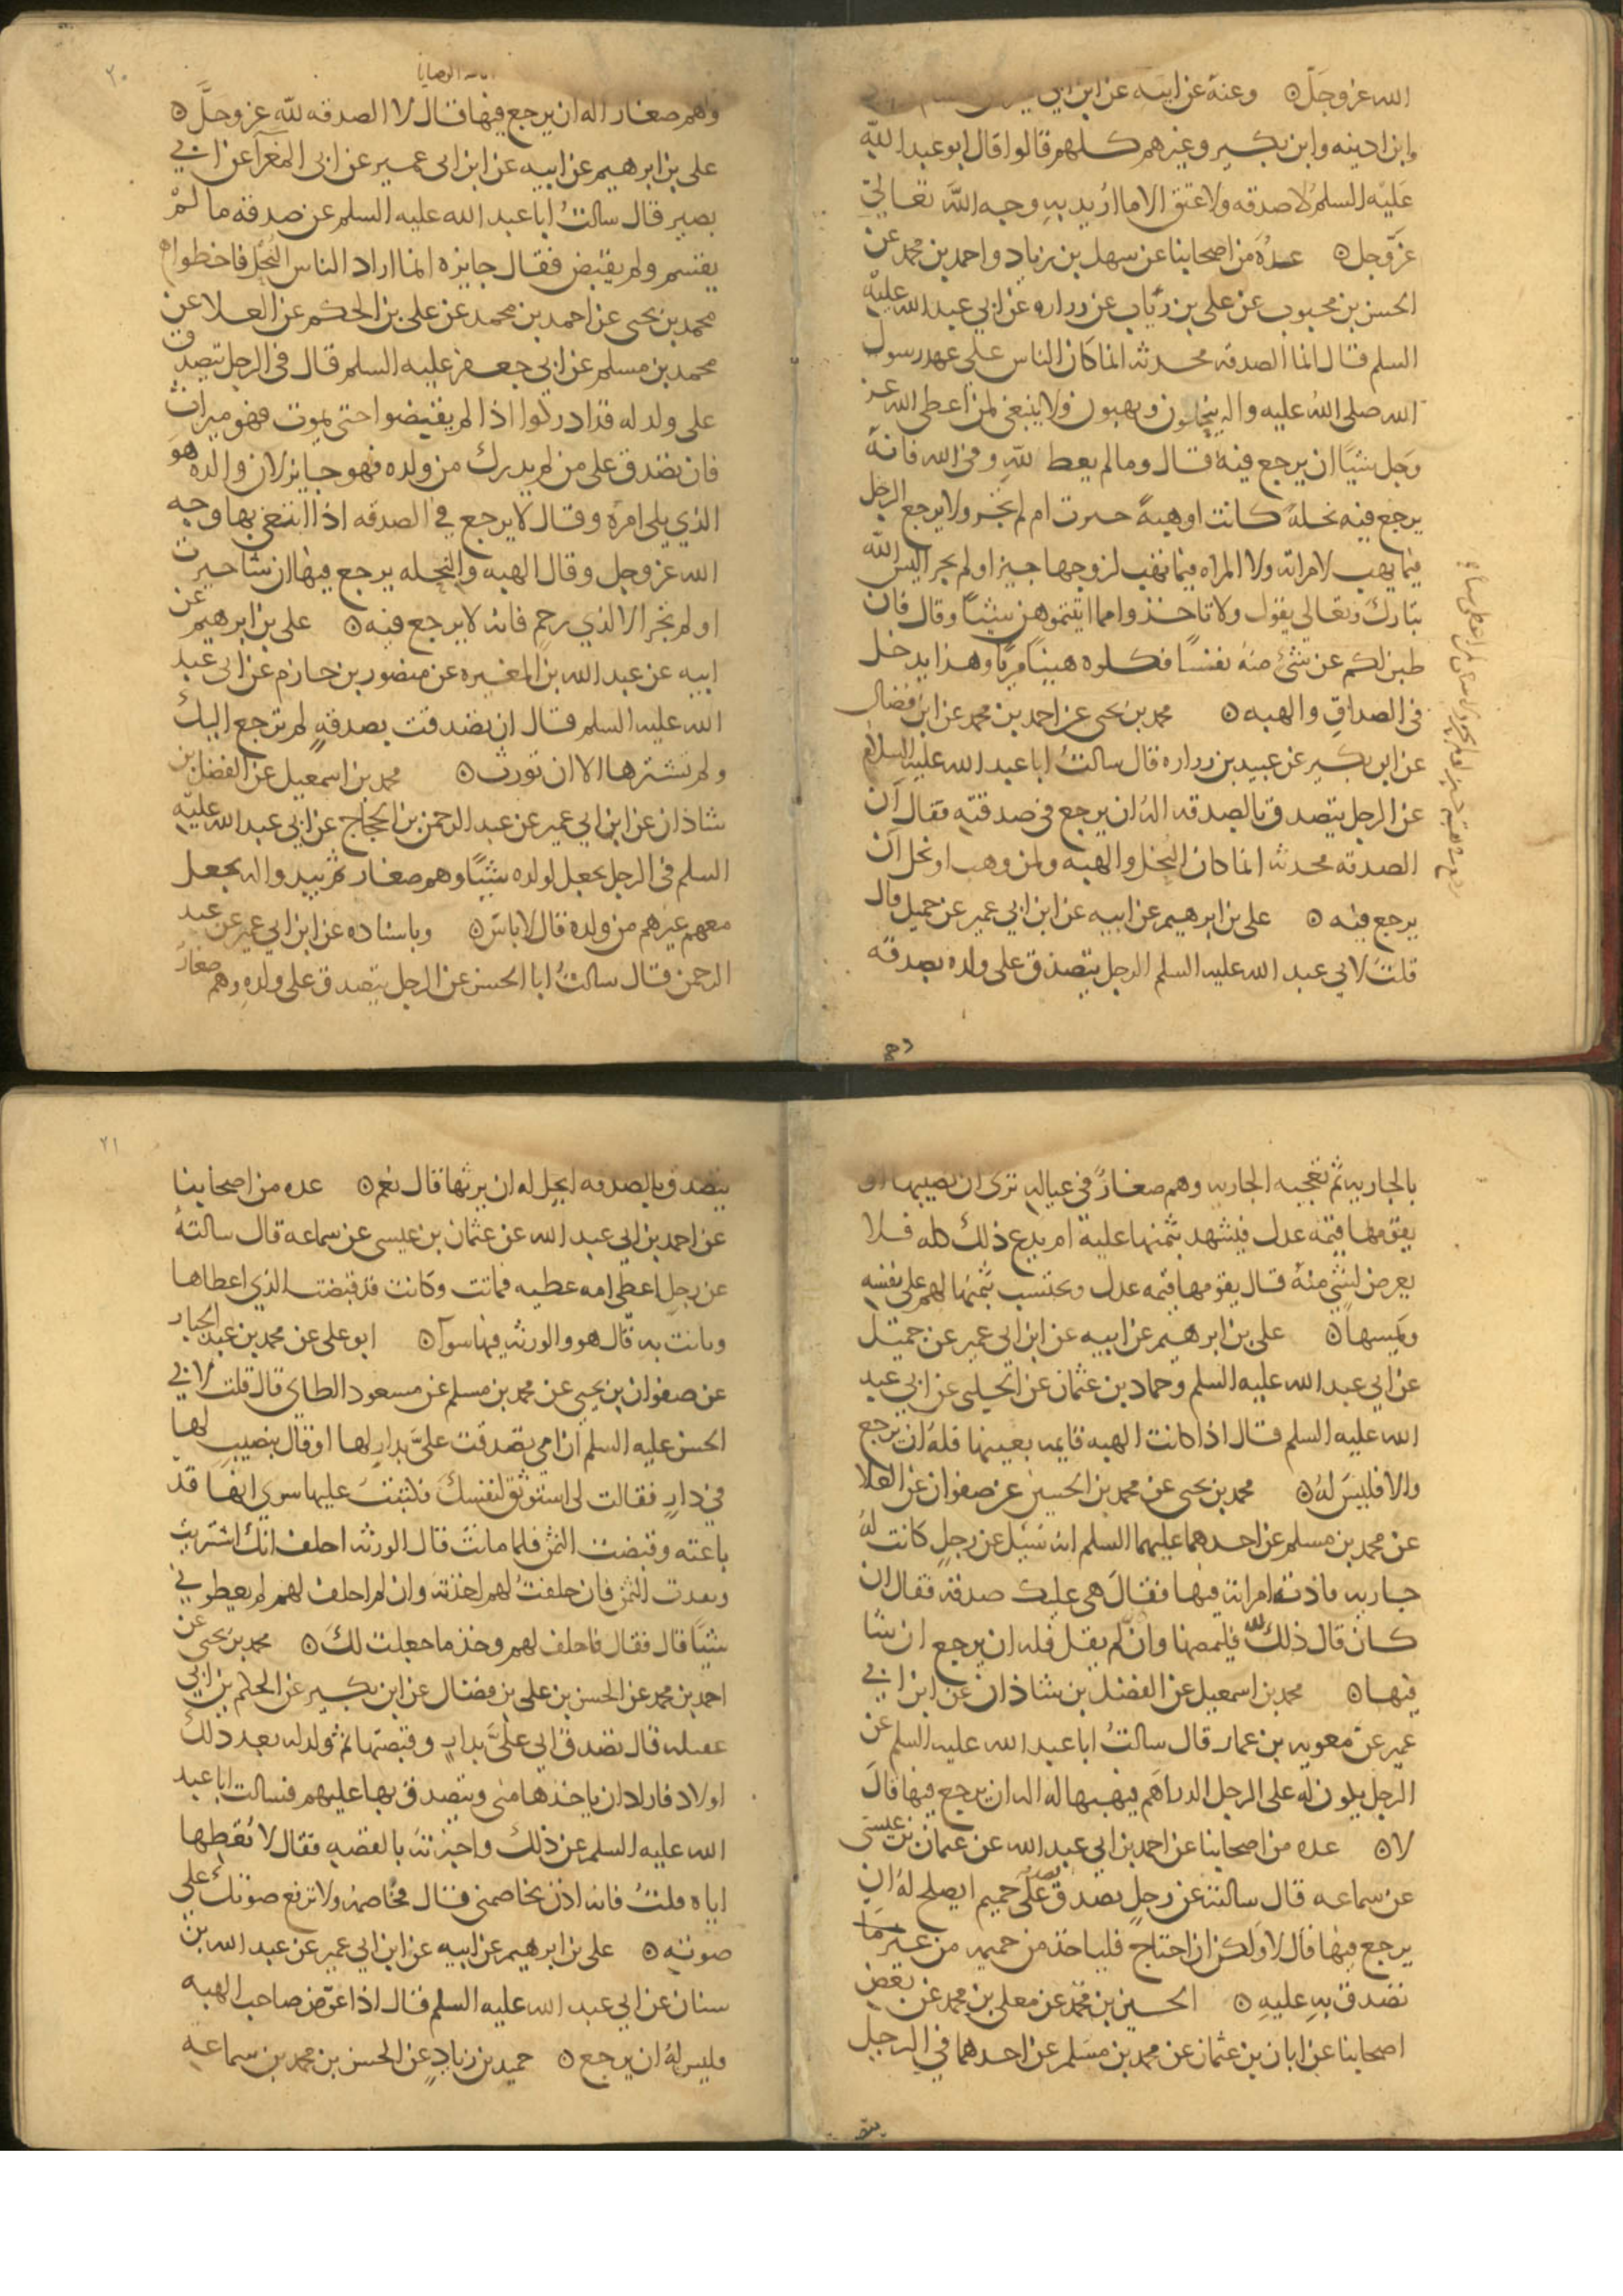 الله عز وجل ۞ وعنه عن ابيه عن ابن ابي
وابن اذينه وابن بكير وغيرهم كلهم قالوا قال ابو عبد الله
عليه السلم لا صدقه ولا عتق الا ما اريد به وجه الله تعالى
عز وجل ۞ عدة من اصحابنا عن سهل بن زياد واحمد بن محمد عن
الحسن بن محبوب عن على بن رئاب عن زراره عن ابي عبد الله عليه
السلم قال انما الصدقه محدثه انما كان الناس على عهد رسول
الله صلى الله عليه واله ينحلون ويهبون ولا ينبغى لمن اعطى الله عز
وجل شيئا ان يرجع فيه قال وما لم يعط لله وفى الله فانه
يرجع فيه نحلة كانت او هبة حيزت ام لم تحز ولا يرجع الرجل
فيما يهب لامراته ولا المراه فيما تهب لزوجها حيز او لم يحز اليس الله
تبارك وتعالى يقول ولا تاخذوا مما اتيتموهن شيئا وقال فان
طبن لكم عن شئ منه نفسا فكلوه هنيئا مريا وهذا يدخل
فى الصداق والهبه ۞ محمد بن يحيى عن احمد بن محمد عن ابن فضال
عن ابن بكير عن عبيد بن زراره قال سالت ابا عبد الله عليه السلام
عن الرجل يتصدق بالصدقه اله ان يرجع فى صدقته فقال ان
الصدقه محدثه انما كان النحل والهبه ولمن وهب او نحل ان
يرجع فيه ۞ على بن ابرهيم عن ابيه عن ابن ابي عمير عن جميل قال
قلت لابي عبد الله عليه السلم الرجل يتصدق على ولده بصدقه
وهم
٢٠
الوصايا
وهم صغار اله ان يرجع فيها قال لا الصدقه لله عز وجل ۞
على بن ابرهيم عن ابيه عن ابن ابى عمير عن ابى المغرا عن ابي
بصير قال سالت ابا عبد الله عليه السلم عن صدقه ما لم
يقتسم ولم يقبض فقال جايزه انما اراد الناس النحل فاخطوا ۞
محمد بن يحيى عن احمد بن محمد عن على بن الحكم عن العلا عن
محمد بن مسلم عن ابي جعفر عليه السلم قال فى الرجل يتصدق
على ولد له قد ادركوا اذا لم يقبضوا حتى يموت فهو ميراث
فان تصدق على من لم يدرك من ولده فهو جايز لان والده هو
الذي يلى امره وقال لا يرجع في الصدقه اذا ابتغى بها وجه
الله عز وجل وقال الهبه والنحله يرجع فيها ان شا حيزت
او لم تحز الا لذي رحم فانه لا يرجع فيه ۞ على بن ابرهيم عن
ابيه عن عبد الله بن المغيره عن منصور بن حازم عن ابى عبد
الله عليه السلم قال ان تصدقت بصدقة لم ترجع اليك
ولم تشترها الا ان تورث ۞ محمد بن اسمعيل عن الفضل بن
شاذان عن ابن ابي عمير عن عبد الرحمن بن الحجاج عن ابي عبد الله عليه
السلم فى الرجل يجعل لولده شيئا وهم صغار ثم يبدوا له يجعل
معهم غيرهم من ولده قال لا باس ۞ وباسناده عن ابن ابي عمير عن عبد
الرحمن قال سالت ابا الحسن عن الرجل يتصدق على ولده وهم صغار
بالجاريه ثم تعجبه الجاريه وهم صغار فى عياله ترى ان يصيبها او
يقومها قيمه عدل فيشهد بثمنها عليه ام يدع ذلك كله فلا
يعرض لشئ منه قال يقومها قيمه عدل ويحتسب بثمنها لهم على نفسه
ويمسها ۞ على بن ابرهيم عن ابيه عن ابن ابى عمير عن جميل
عن ابي عبد الله عليه السلم وحماد بن عثمان عن الحلبى عن ابي عبد
الله عليه السلم قال اذا كانت الهبه قايمه بعينها فله ان يرجع
والا فليس له ۞ محمد بن يحيى عن محمد بن الحسين عن صفوان عن العلا
عن محمد بن مسلم عن احدهما عليهما السلم انه سئل عن رجل كانت له
جاريه فاذته امراته فيها فقال هى عليك صدقه فقال ان
كان قال ذلك لله فليمضها وان لم يقل فله ان يرجع ان شا
فيها ۞ محمد بن اسمعيل عن الفضل بن شاذان عن ابن ابي
عمير عن معويه بن عمار قال سالت ابا عبد الله عليه السلم عن
الرجل يكون له على الرجل الدراهم فيهبها له اله ان يرجع فيها قال
لا ۞ عده من اصحابنا عن احمد بن ابي عبد الله عن عثمان بن عيسى
عن سماعه قال سالته عن رجل تصدق على حميم ايصلح له ان
يرجع فيها قال لا ولكن ان احتاج فلياخذ من حميمه من غير ما
تصدق به عليه ۞ الحسين بن محمد عن معلى بن محمد عن بعض
اصحابنا عن ابان بن عثمان عن محمد بن مسلم عن احدهما في الرجل
يتصد
٢١
يتصدق بالصدقه ايحل له ان يرثها قال نعم ۞ عده من اصحابنا
عن احمد بن ابي عبد الله عن عثمان بن عيسى عن سماعه قال سالته
عن رجل اعطى امه عطيه فماتت وكانت قد قبضت الذي اعطاها
وبانت به قال هو والورثه فيها سوا ۞ ابو على عن محمد بن عبد الجبار
عن صفوان بن يحيى عن محمد بن مسلم عن مسعود الطاى قال قلت لابي
الحسن عليه السلم ان امي تصدقت على بدار لها او قال بنصيب لها
في دار فقالت لى استوثق لنفسك فكتبت عليها شرى انها قد
باعته وقبضت الثمن فلما ماتت قال الورثه احلف انك اشتريت
ونقدت الثمن فان حلفت لهم اخذته وان لم احلف لهم لم يعطوني
شيئا قال فقال فاحلف لهم وخذ ما جعلت لك ۞ محمد بن يحيى عن
احمد بن محمد عن الحسن بن على بن فضال عن ابن بكير عن الحكم بن ابي
عقيله قال تصدق ابي على بدار وقبضتها ثم ولد له بعد ذلك
اولاد فاراد ان ياخذها منى ويتصدق بها عليهم فسالت ابا عبد
الله عليه السلم عن ذلك واخبرته بالقصه فقال لا تعطها
اياه قلت فانه اذن يخاصمنى قال فخاصمه ولا ترفع صوتك على
صوته ۞ على بن ابرهيم عن ابيه عن ابن ابي عمير عن عبد الله بن
سنان عن ابي عبد الله عليه السلم قال اذا عوض صاحب الهبه
فليس له ان يرجع ۞ حميد بن زياد عن الحسن بن محمد بن سماعة